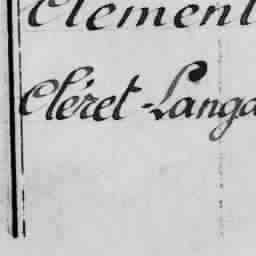 Clément
Cléret-Langa